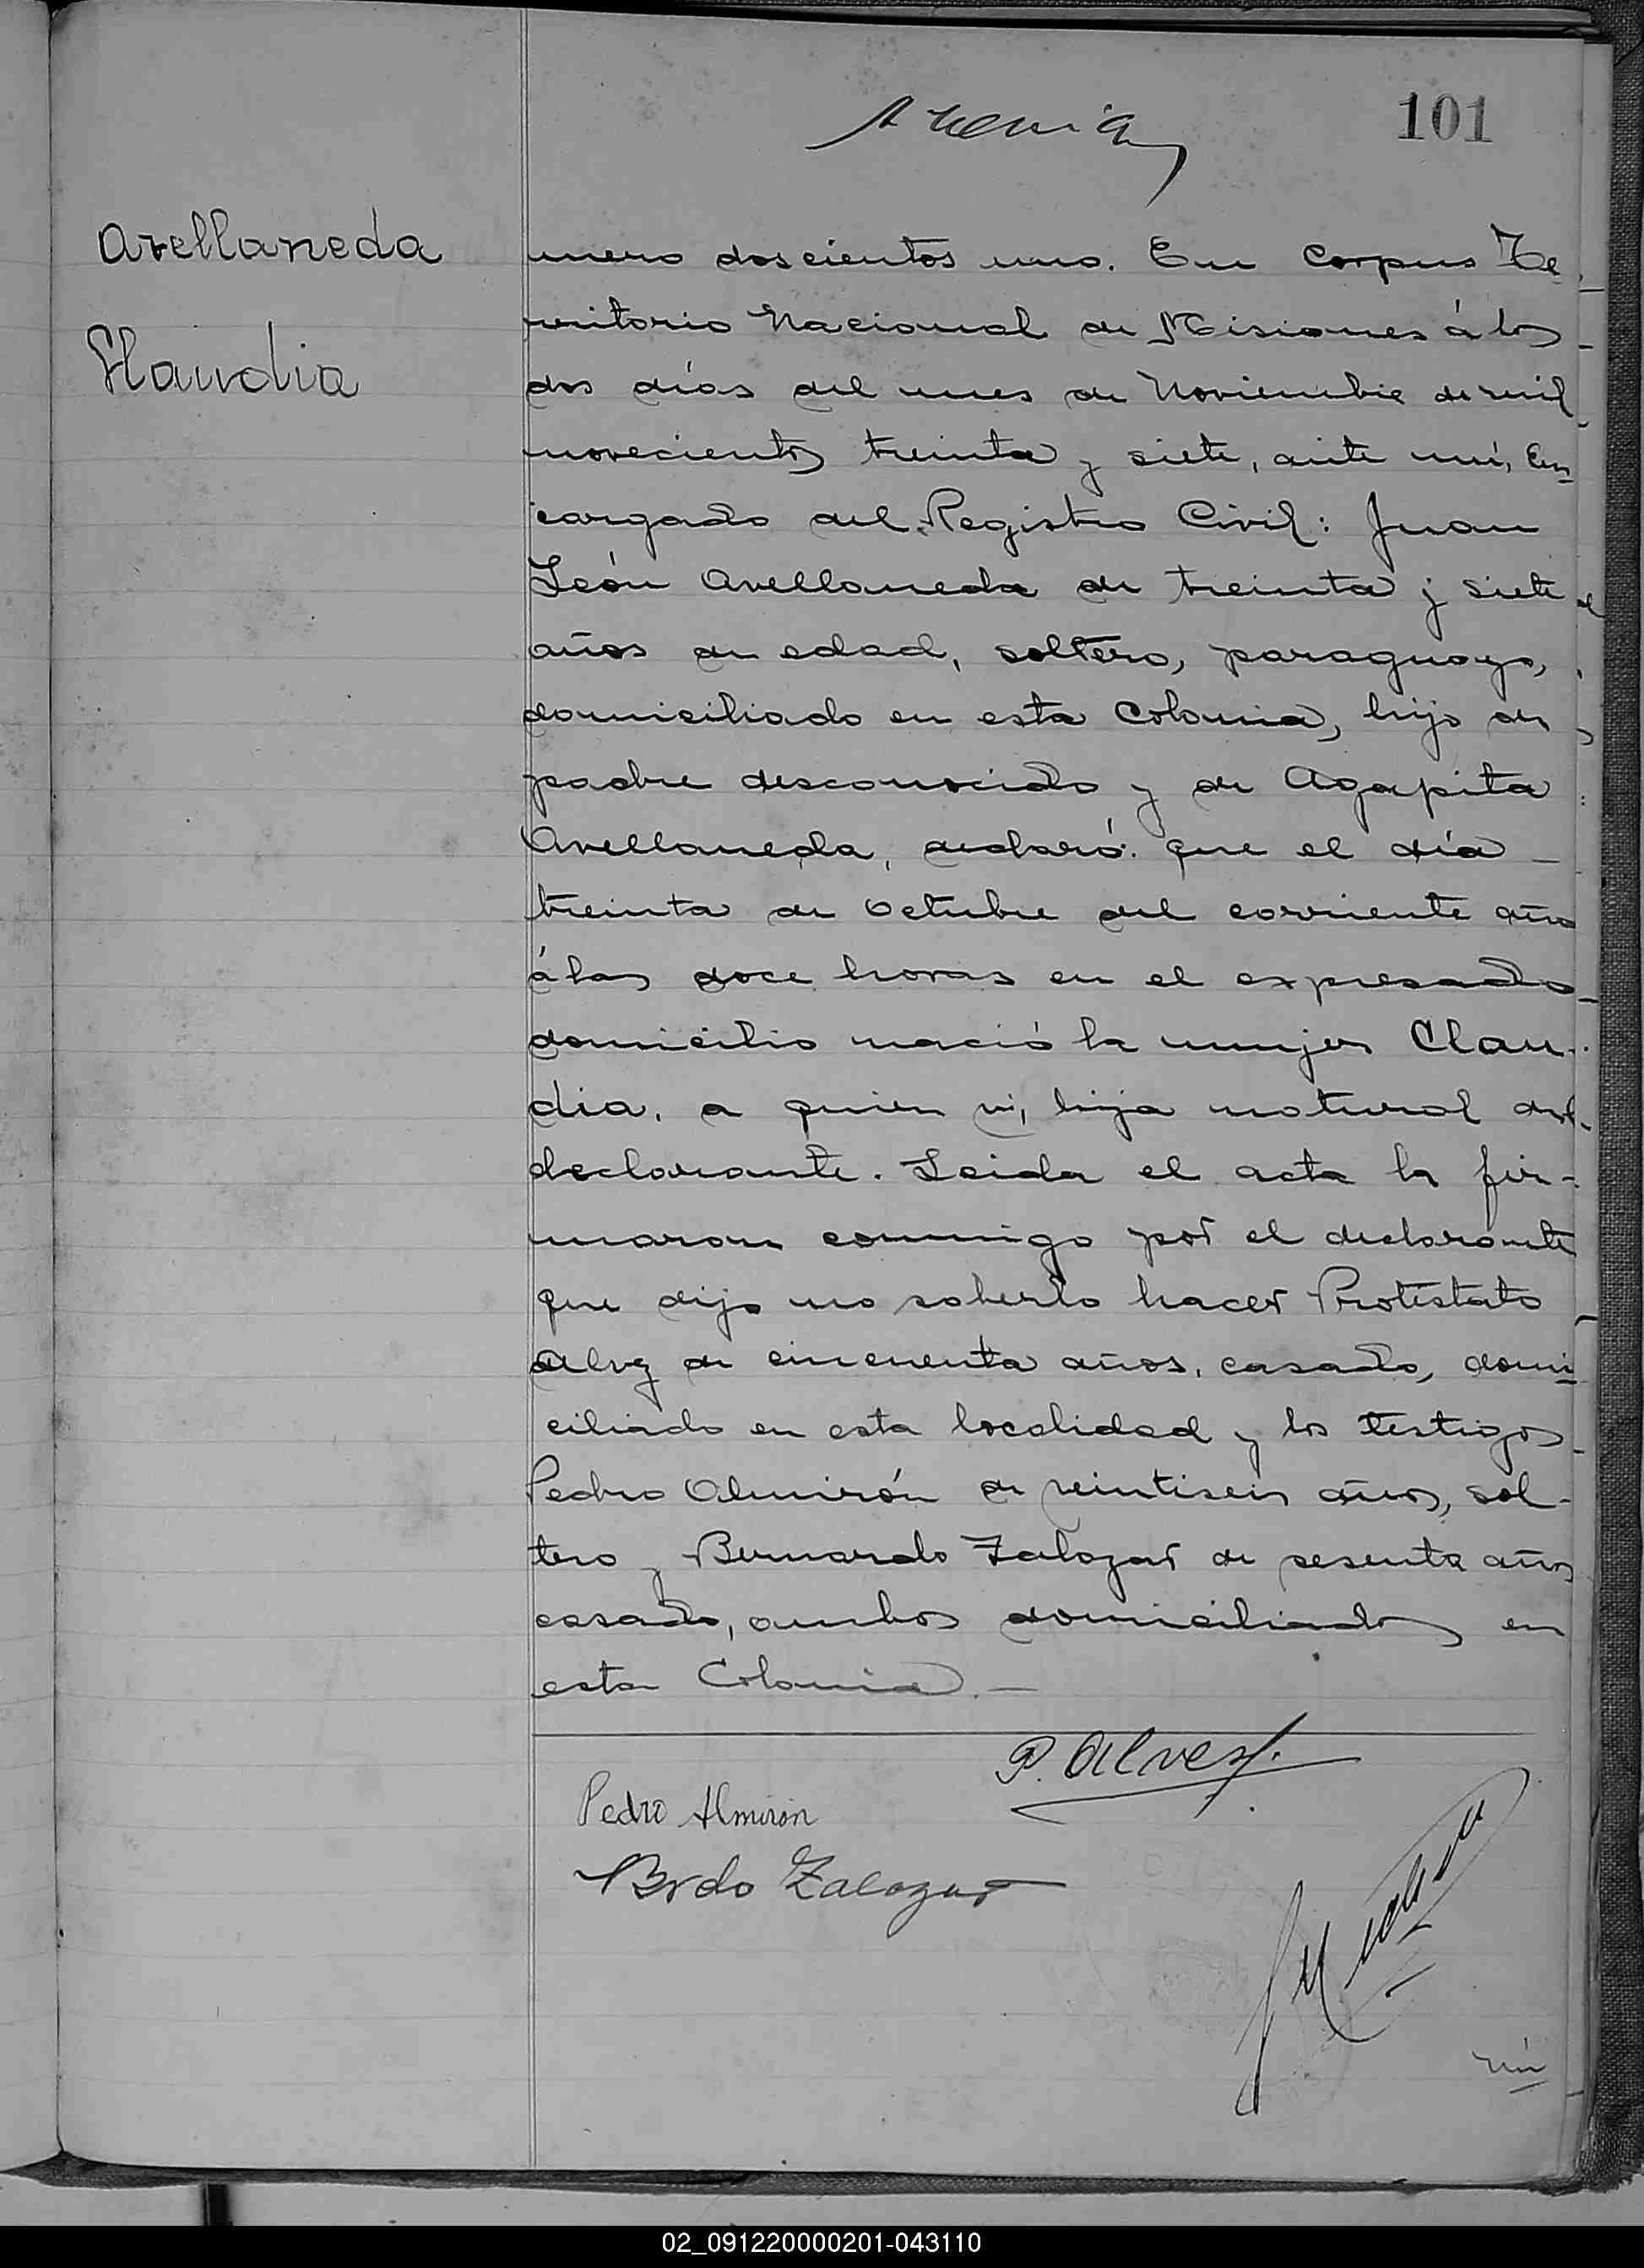 101
Avellaneda
Claudia
mero doscientos uno. En Corpus Te
rritorio Nacional de Misiones á los
dos días del mes de Noviembre de mil
novecientos treinta y siete, ante mí, En
cargado del Registro Civil: Juan
León Avellaneda de treinta y siete
años de edad, soltero, paraguayo,
domiciliado en esta Colonia, hijo de
padre desconocido y de Agapita
Avellaneda, declaró: que el día
treinta de Octubre del corriente año
á las doce horas en el expresado
domicilio nació la mujer Clau-
dia, a quien vi, hija natural del
declarante. Leida el acta la fir-
maron conmigo por el declarante
que dijo no saberlo hacer Protestato
Alvez de cincuenta años, casado, domi
ciliado en esta localidad y los testigos
Pedro Almirón de veintiseis años, sol-
tero y Bernardo Zalazar de sesenta años
casado, ambos domiciliados en
esta Colonia.—
P. Alvez.
Pedro Almirón
Brdo Zalazar
02_091220000201-043110